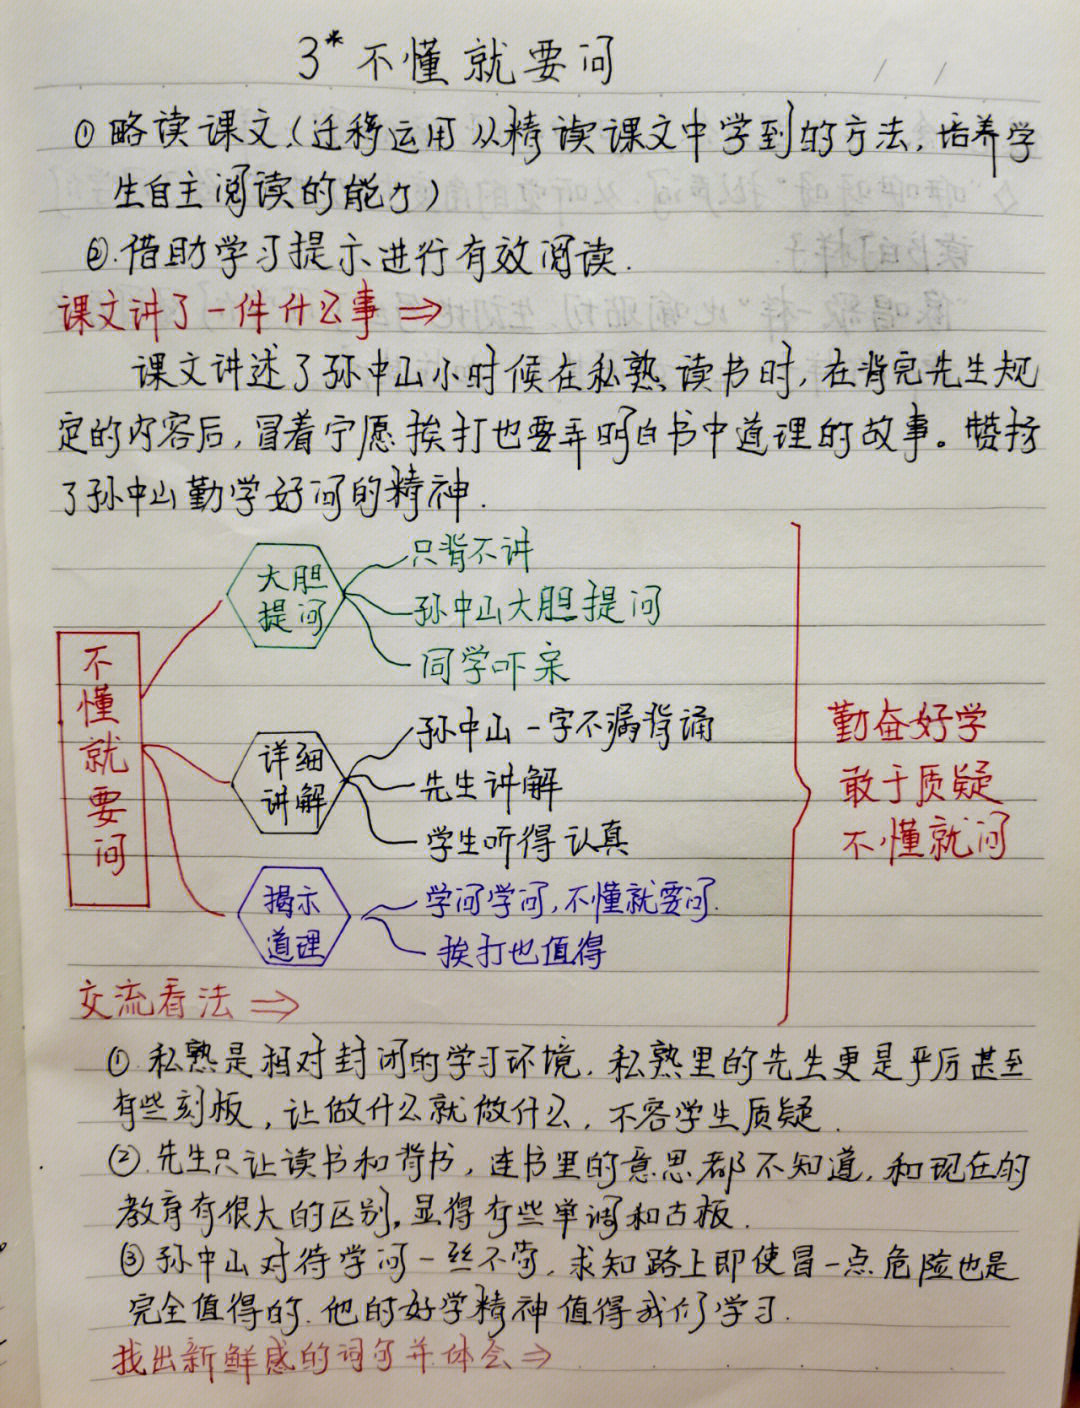 3*不懂就要问
①略读课文(迁移运用从精读课文中学到的方法,培养学
生自主阅读的能力)
②.借助学习提示进行有效阅读.
课文讲了一件什么事⇒
课文讲述了孙中山小时候在私熟读书时,在背完先生规
定的内容后,冒着宁愿挨打也要弄明白书中道理的故事。赞扬
了孙中山勤学好问的精神.
不懂就要问
大胆
提问
只背不讲
孙中山大胆提问
同学吓呆
详细
讲解
孙中山一字不漏背诵
先生讲解
学生听得认真
揭示
道理
学问学问,不懂就要问.
挨打也值得
勤奋好学
敢于质疑
不懂就问
交流看法⇒
①.私熟是相对封闭的学习环境.私熟里的先生更是严厉甚至
有些刻板,让做什么就做什么,不容学生质疑.
②.先生只让读书和背书,连书里的意思都不知道,和现在的
教育有很大的区别,显得有些单调和古板.
③孙中山对待学问一丝不苟,求知路上即使冒一点危险也是
完全值得的.他的好学精神值得我们学习.
找出新鲜感的词句并体会⇒